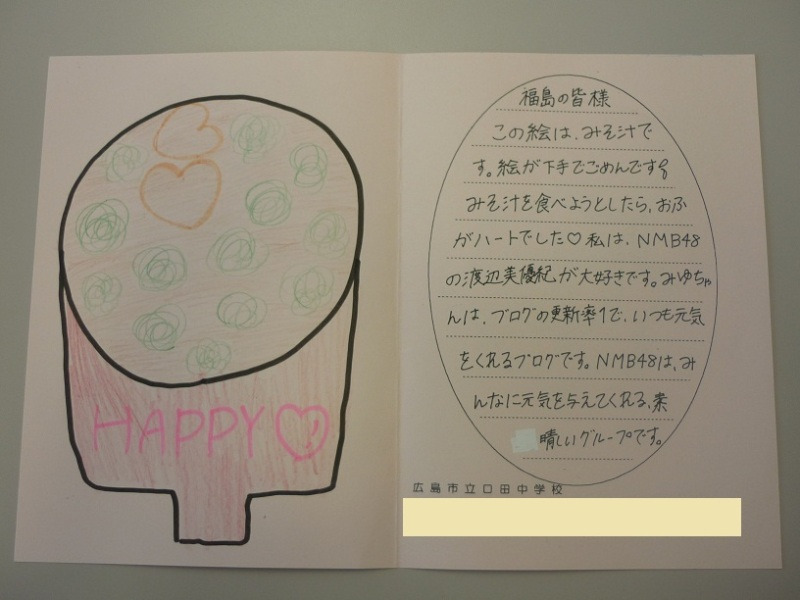 HAPPY♡
福島の皆様
この絵は、みそ汁で
す。絵が下手でごめんです
みそ汁を食べようとしたら、おふ
がハートでした♡私は、NMB48
の渡辺美優紀が大好きです。みゆちゃ
んは、ブログの更新率1で、いつも元気
をくれるブログです。NMB48は、み
んなに元気を与えてくれる、素
晴しいグループです。
広島市立口田中学校